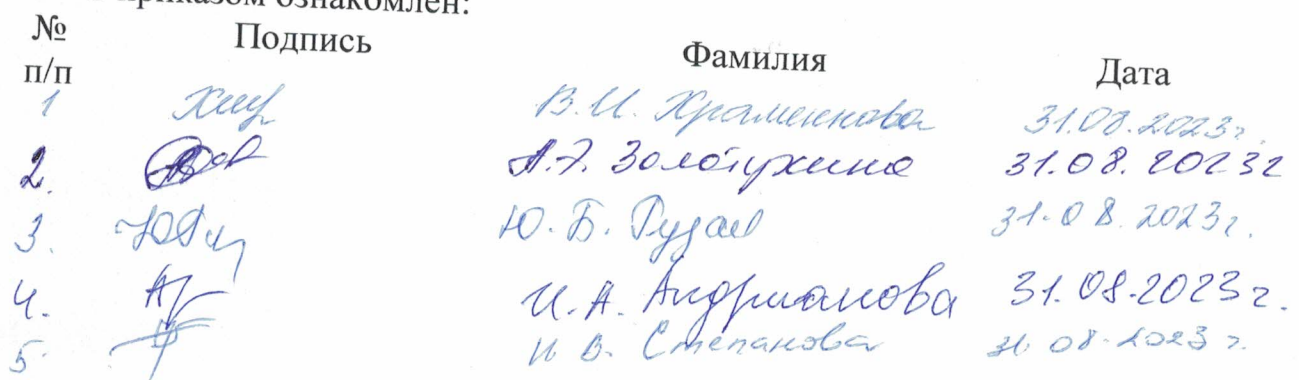 приказом ознакомлен:
№ п/п Подпись Фамилия Дата
1 В.И. Храменкова 31.08.2023г.
2. А.Э. Золотухина 31.08.2023г
3. Ю.Б. 31.08.2023г.
4. И.А. Андрианова 31.08.2023г.
5 И В. Степанова 31 08.2023 г.